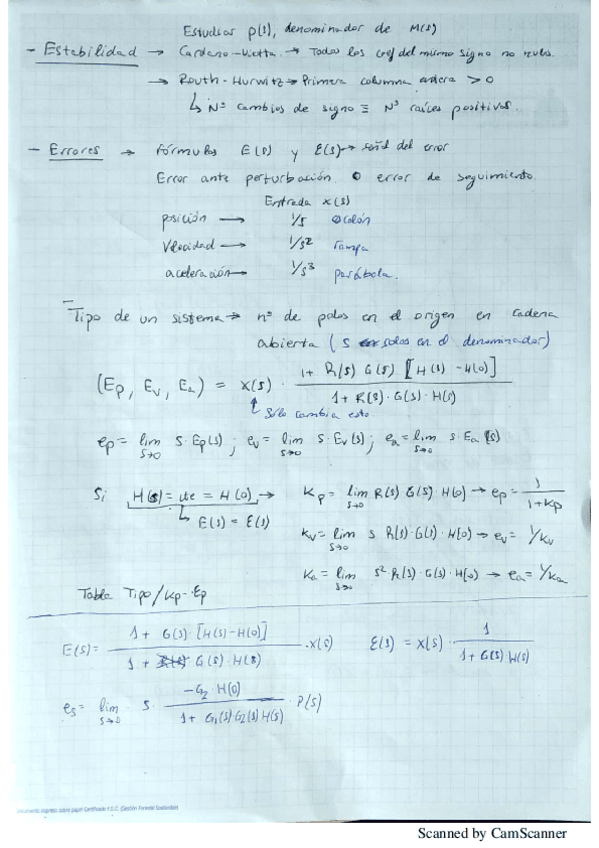 Estudiar p(s), denominador de M(s)
- Estabilidad → Cardano-Vietta → Todos los coef del mismo signo no nulos.
→ Routh-Hurwitz → Primera columna entera > 0
↳ Nº cambios de signo ≡ Nº raíces positivas.
- Errores → fórmulas E(s) y Ɛ(s) → señal del error
Error ante perturbación o error de seguimiento.
Entrada x(s)
posición → 1/s escalón
Velocidad → 1/s² rampa
aceleración → 1/s³ parábola.
Tipo de un sistema → nº de polos en el origen en cadena
abierta (s solas en el denominador)
(Ep, Ev, Ea) = x(s) · (1 + R(s) G(s) [H(s) - H(0)]) / (1 + R(s)·G(s)·H(s))
Sólo cambia esto
ep = lim s→0 s·Ep(s) ; ev = lim s→0 s·Ev(s) ; ea = lim s→0 s·Ea(s)
Si H(s) = cte = H(0) → Kp = lim s→0 R(s) G(s) H(0) → ep = 1/(1+Kp)
↳ E(s) = Ɛ(s)
Kv = lim s→0 s R(s)·G(s)·H(0) → ev = 1/Kv
Ka = lim s→0 s²·R(s)·G(s)·H(0) → ea = 1/Ka
Tabla Tipo/Kp-Ep
E(s) = (1 + G(s)·[H(s)-H(0)]) / (1 + G(s)·H(s)) · X(s) Ɛ(s) = X(s) · 1/(1+G(s)H(s))
es = lim s→0 s · (-G2·H(0)) / (1 + G1(s)G2(s)H(s)) · P(s)
Documento impreso sobre papel Certificado F.S.C. (Gestión Forestal Sostenible)
Scanned by CamScanner